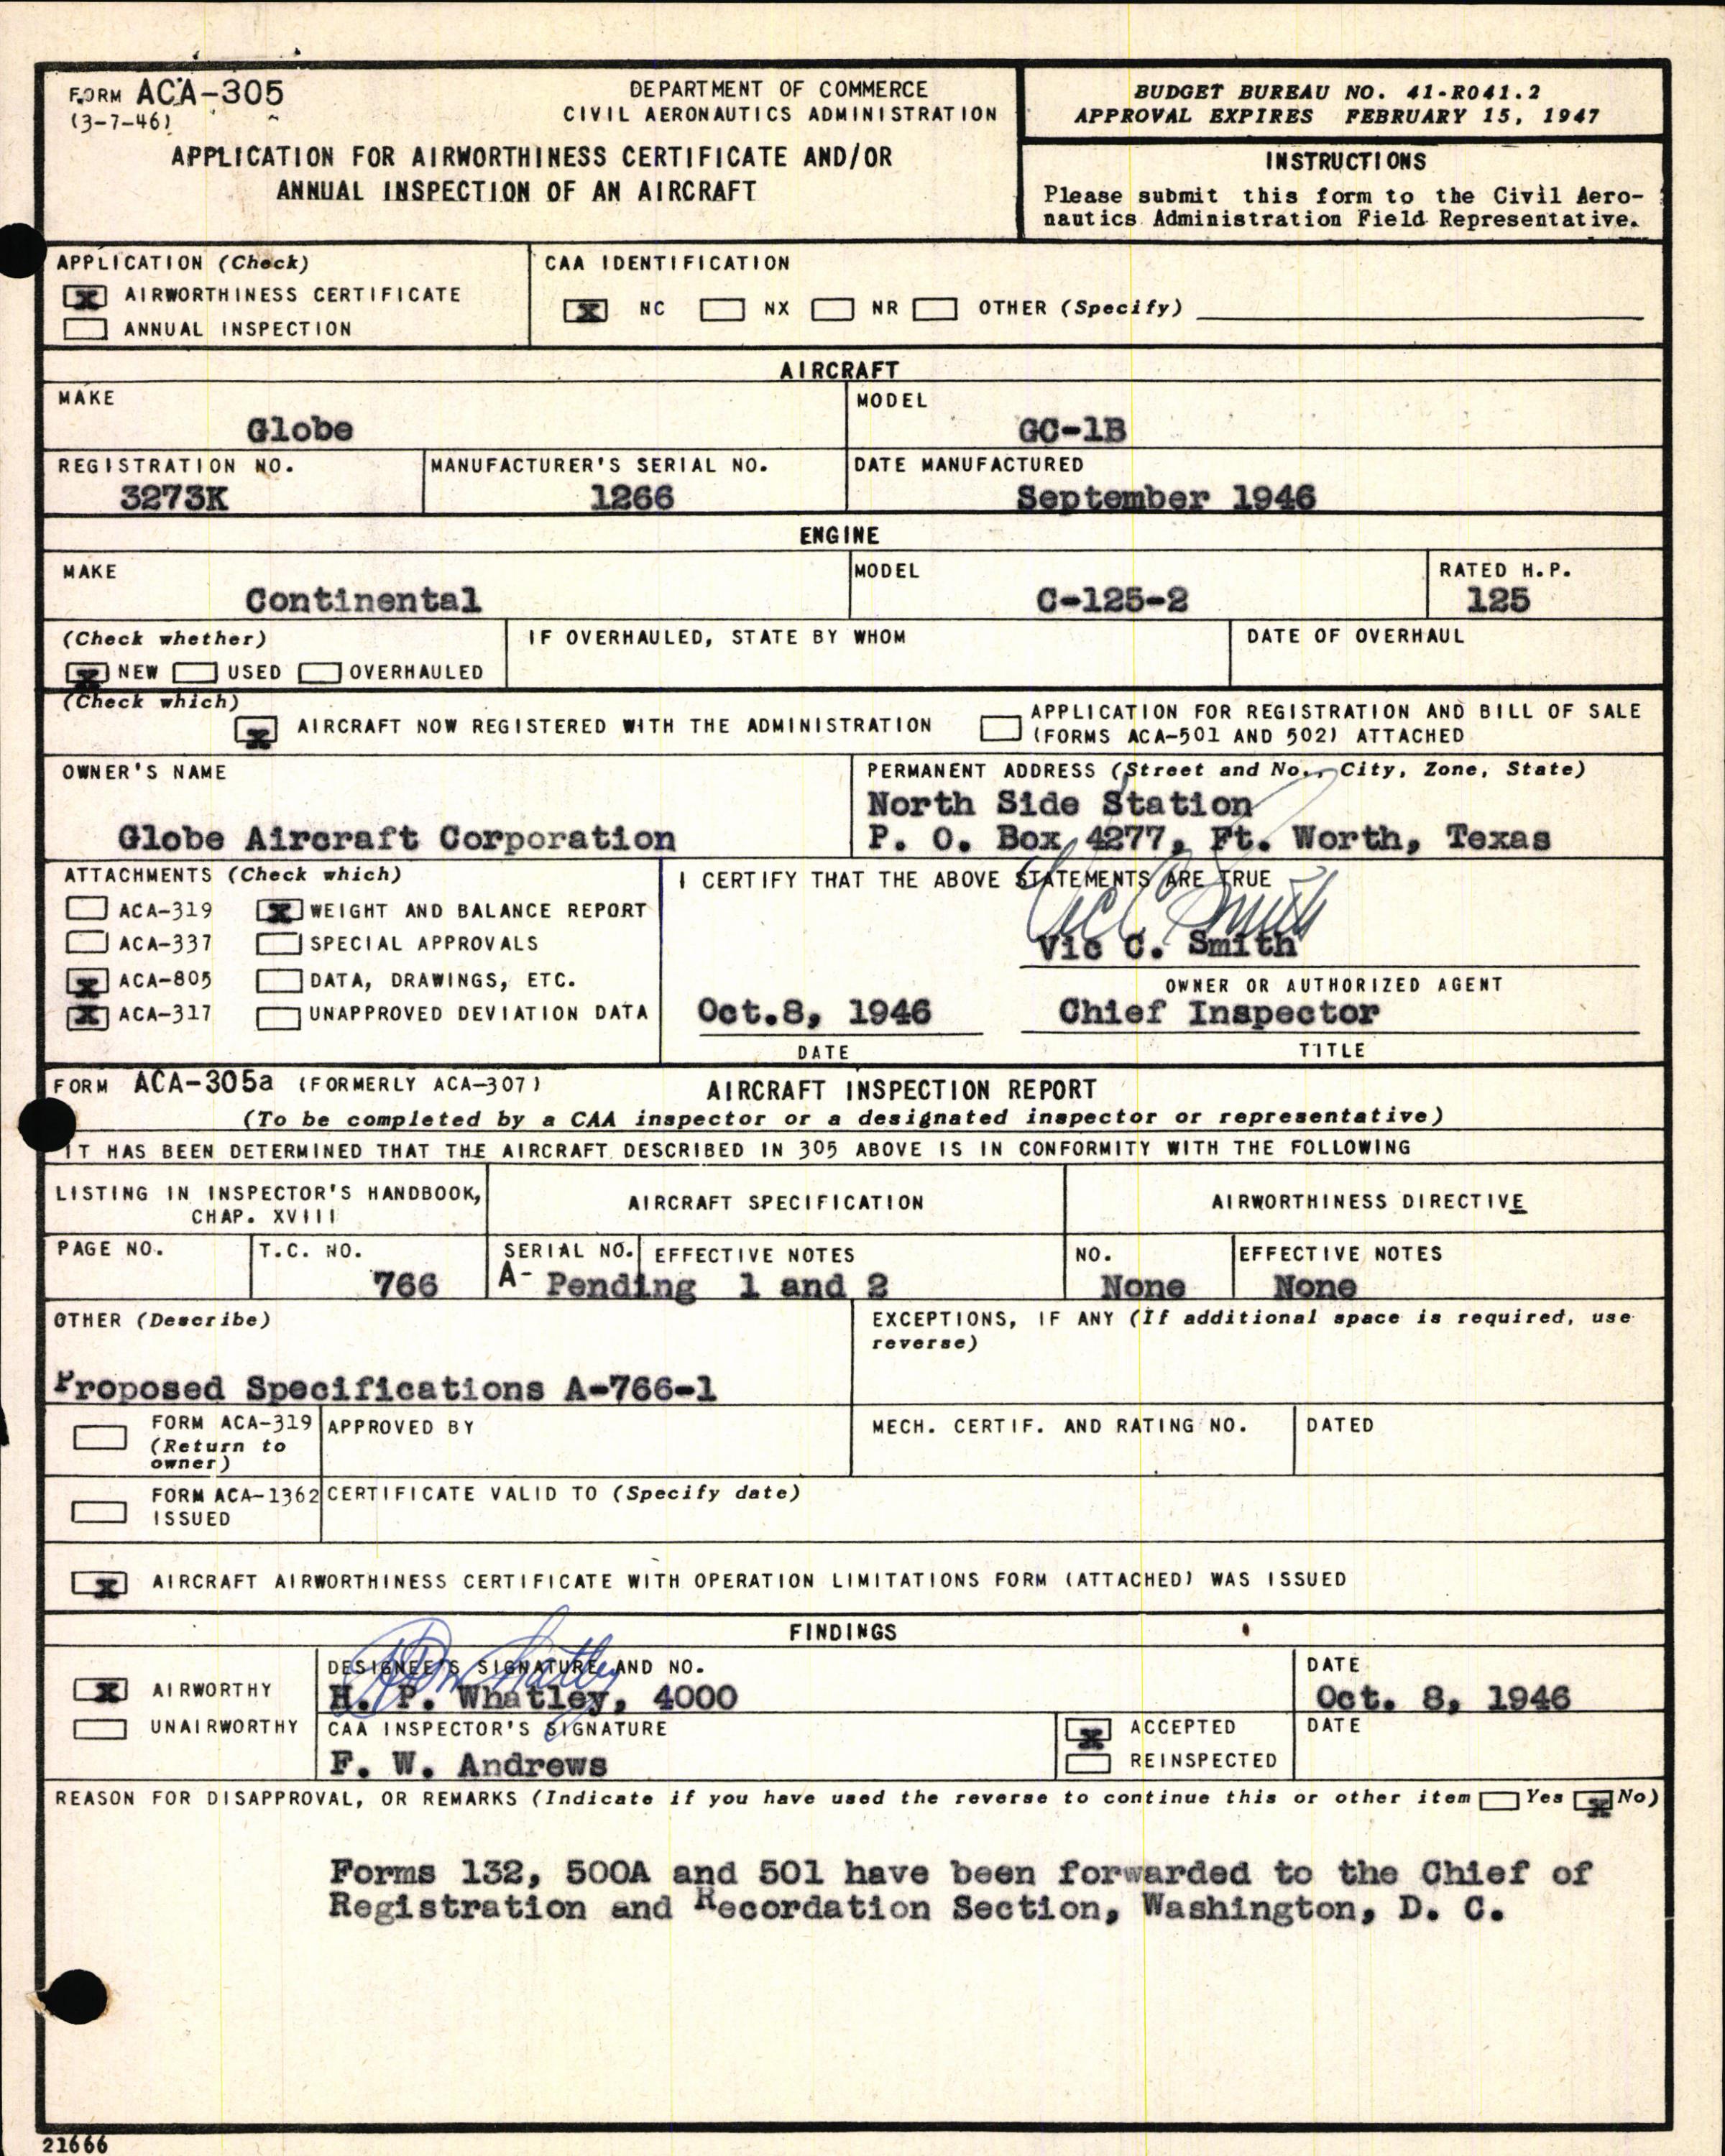 FORM ACA-305
(3-7-46)
DEPARTMENT OF COMMERCE
CIVIL AERONAUTICS ADMINISTRATION
APPLICATION FOR AIRWORTHINESS CERTIFICATE AND/OR
ANNUAL INSPECTION OF AN AIRCRAFT
BUDGET BUREAU NO. 41-R041.2
APPROVAL EXPIRES FEBRUARY 15, 1947
INSTRUCTIONS
Please submit this form to the Civil Aero-
nautics Administration Field Representative.
APPLICATION (Check)
X AIRWORTHINESS CERTIFICATE
ANNUAL INSPECTION
CAA IDENTIFICATION
X NC NX NR OTHER (Specify)
AIRCRAFT
MAKE
Globe
MODEL
GC-1B
REGISTRATION NO.
3273K
MANUFACTURER'S SERIAL NO.
1266
DATE MANUFACTURED
September 1946
ENGINE
MAKE
Continental
MODEL
C-125-2
RATED H.P.
125
(Check whether)
X NEW USED OVERHAULED
IF OVERHAULED, STATE BY WHOM
DATE OF OVERHAUL
(Check which)
X AIRCRAFT NOW REGISTERED WITH THE ADMINISTRATION
APPLICATION FOR REGISTRATION AND BILL OF SALE
(FORMS ACA-501 AND 502) ATTACHED
OWNER'S NAME
Globe Aircraft Corporation
PERMANENT ADDRESS (Street and No., City, Zone, State)
North Side Station
P. O. Box 4277, Ft. Worth, Texas
ATTACHMENTS (Check which)
ACA-319 X WEIGHT AND BALANCE REPORT
ACA-337 SPECIAL APPROVALS
X ACA-805 DATA, DRAWINGS, ETC.
X ACA-317 UNAPPROVED DEVIATION DATA
I CERTIFY THAT THE ABOVE STATEMENTS ARE TRUE
Vic C Smith
Vic C. Smith
OWNER OR AUTHORIZED AGENT
Oct.8, 1946 Chief Inspector
DATE TITLE
FORM ACA-305a (FORMERLY ACA-307) AIRCRAFT INSPECTION REPORT
(To be completed by a CAA inspector or a designated inspector or representative)
IT HAS BEEN DETERMINED THAT THE AIRCRAFT DESCRIBED IN 305 ABOVE IS IN CONFORMITY WITH THE FOLLOWING
LISTING IN INSPECTOR'S HANDBOOK,
CHAP. XVIII
AIRCRAFT SPECIFICATION
AIRWORTHINESS DIRECTIVE
PAGE NO.
T.C. NO.
766
SERIAL NO. EFFECTIVE NOTES
A- Pending 1 and 2
NO.
None
EFFECTIVE NOTES
None
OTHER (Describe)
Proposed Specifications A-766-1
EXCEPTIONS, IF ANY (If additional space is required, use
reverse)
FORM ACA-319
(Return to
owner)
APPROVED BY
MECH. CERTIF. AND RATING NO.
DATED
FORM ACA-1362
ISSUED
CERTIFICATE VALID TO (Specify date)
X AIRCRAFT AIRWORTHINESS CERTIFICATE WITH OPERATION LIMITATIONS FORM (ATTACHED) WAS ISSUED
FINDINGS
X AIRWORTHY
UNAIRWORTHY
DESIGNEE'S SIGNATURE AND NO.
H. P. Whatley, 4000
DATE
Oct. 8, 1946
CAA INSPECTOR'S SIGNATURE
F. W. Andrews
X ACCEPTED
REINSPECTED
DATE
REASON FOR DISAPPROVAL, OR REMARKS (Indicate if you have used the reverse to continue this or other item Yes X No)
Forms 132, 500A and 501 have been forwarded to the Chief of
Registration and Recordation Section, Washington, D. C.
21666